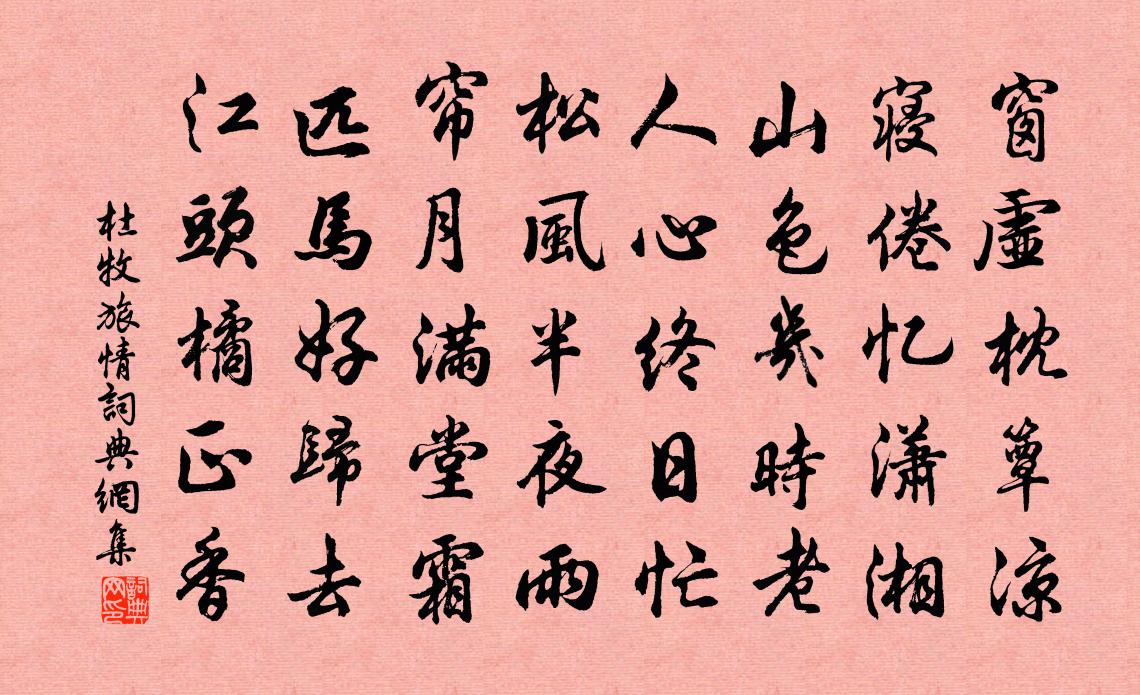 窗虛枕簟涼
寝倦忆瀟湘
山色幾時老
人心终日忙
松風半夜雨
帘月滿堂霜
匹馬好歸去
江頭橘正香
杜牧旅情詞典網集